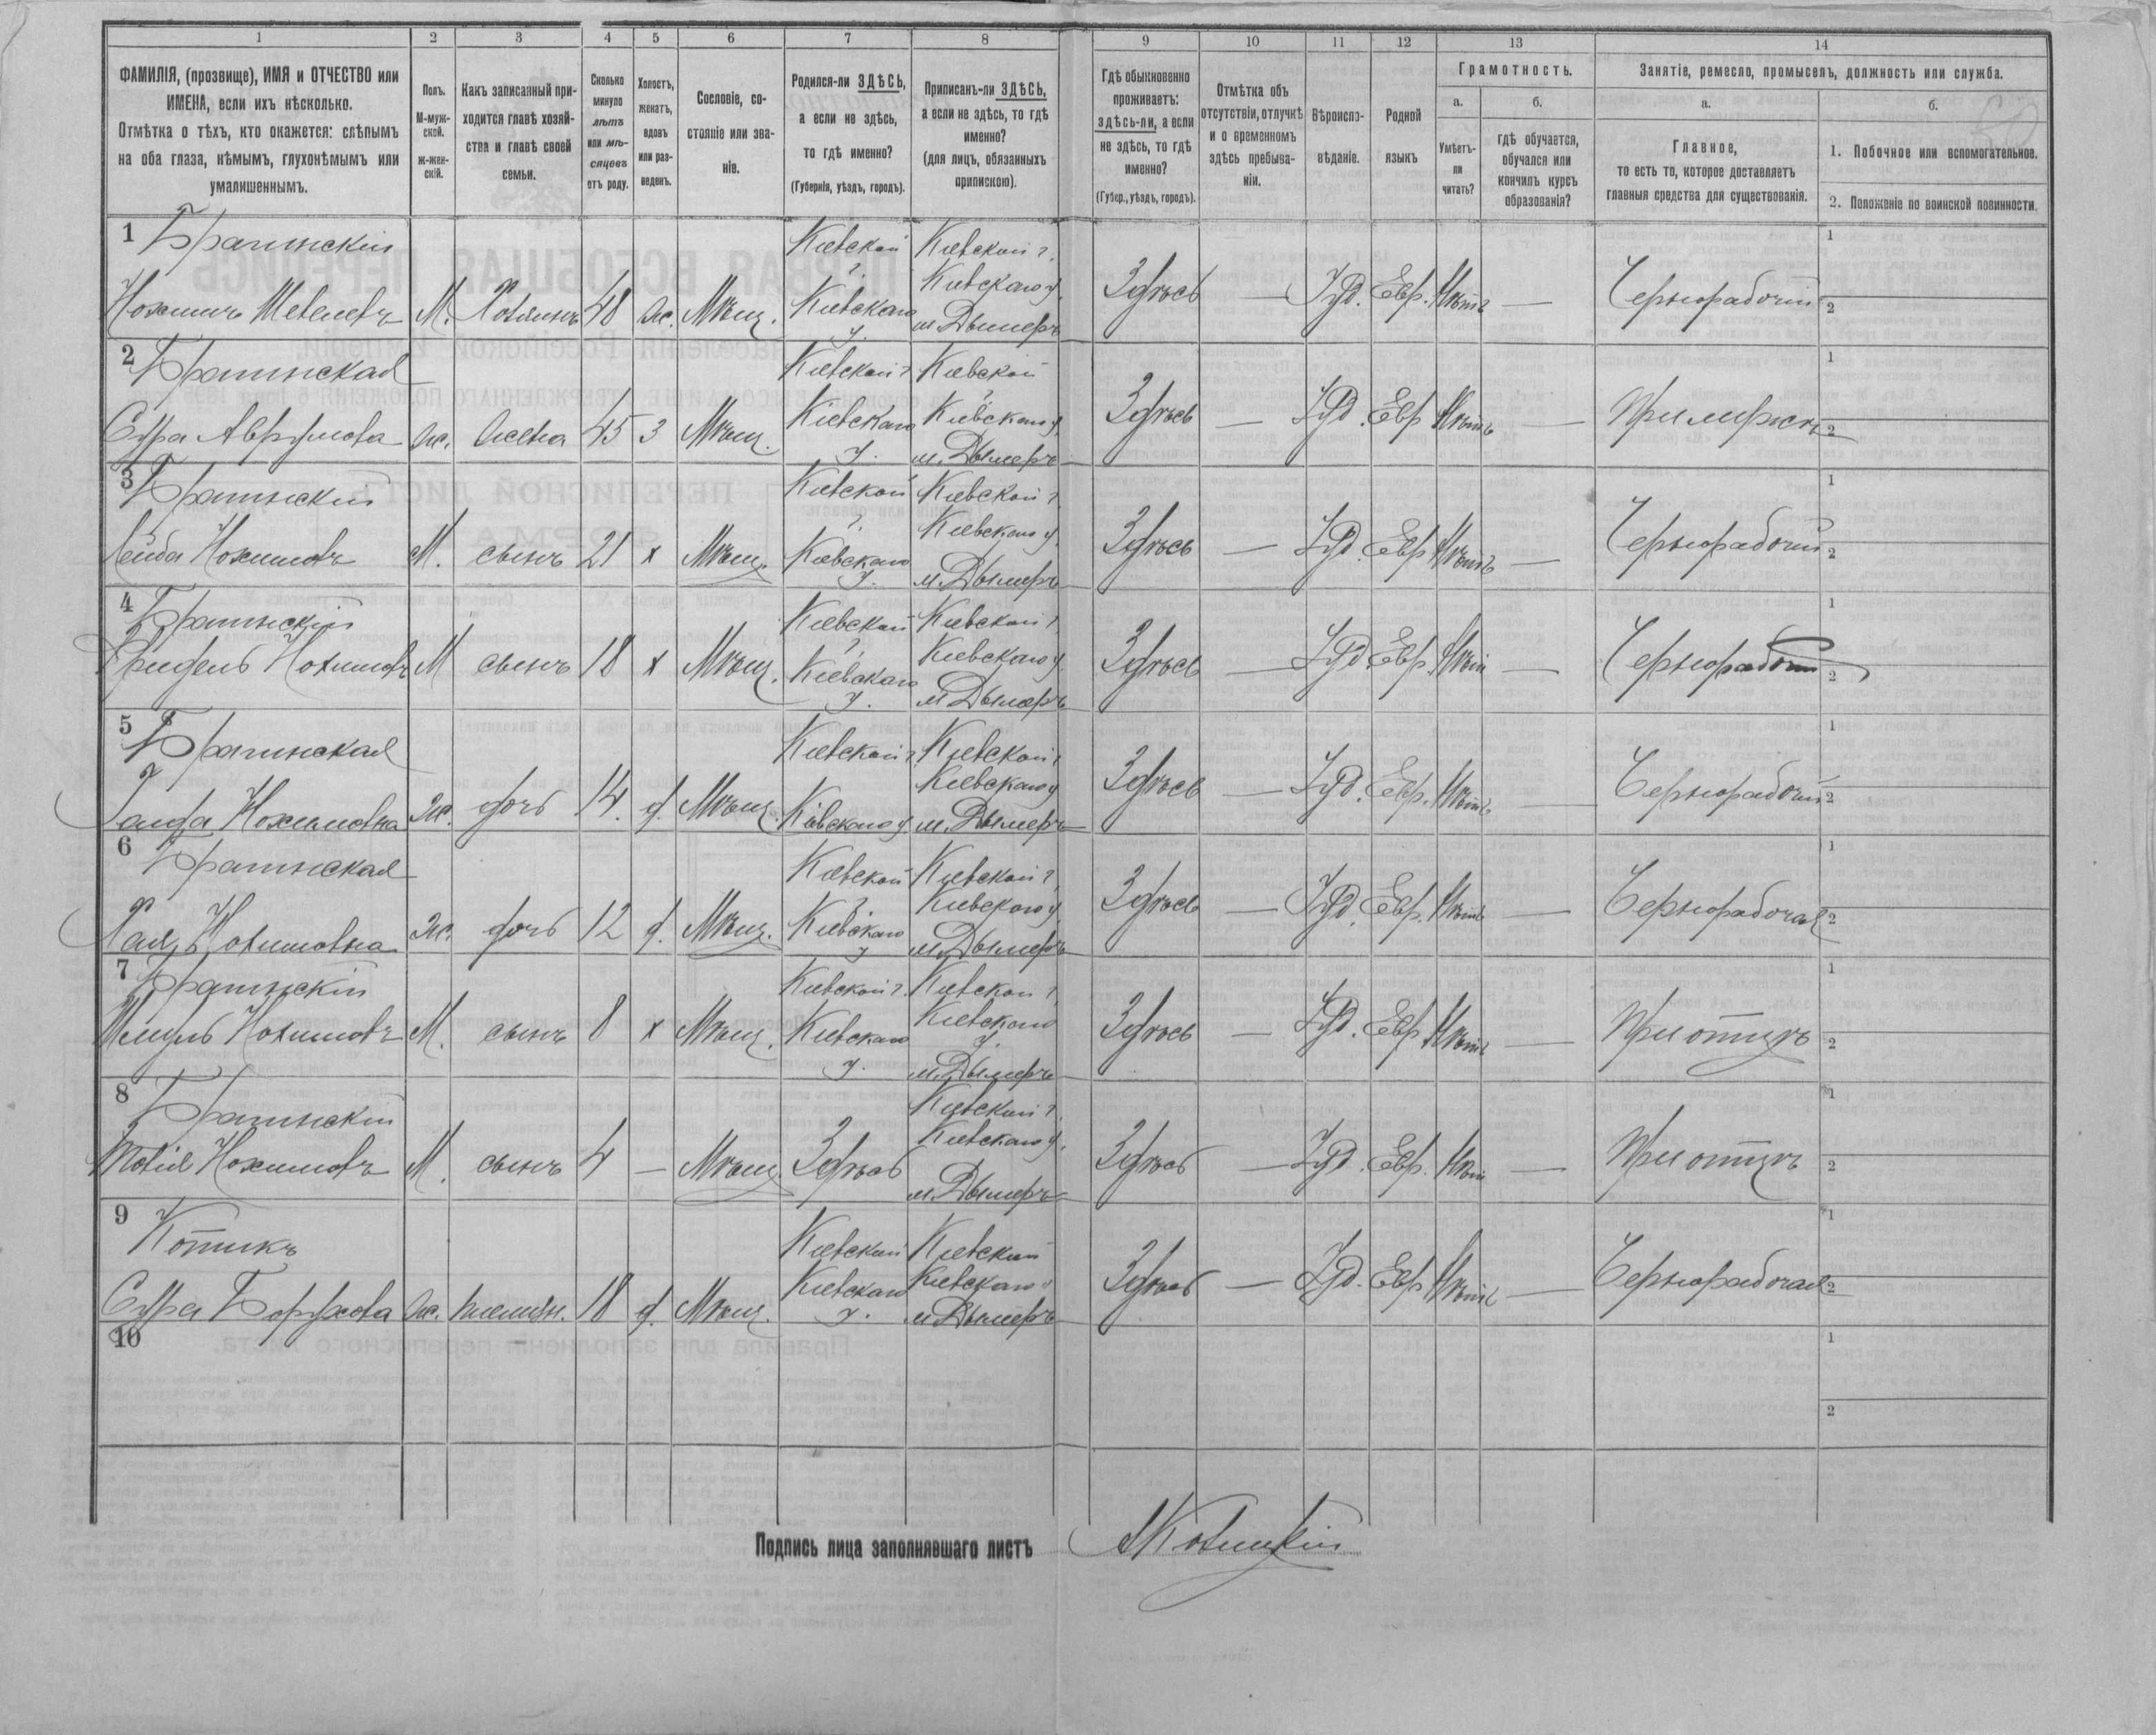 1 2 3 4 5 6 7 8 9 10 11 12 13 14
ФАМИЛІЯ, (прозвище), ИМЯ и ОТЧЕСТВО или ИМЕНА, если ихъ нѣсколько.
Отмѣтка о тѣхъ, кто окажется: слѣпымъ на оба глаза, нѣмымъ, глухонѣмымъ или умалишеннымъ.
Полъ. М-мужской. ж-женскій.
Какъ записанный приходится главѣ хозяйства и главѣ своей семьи.
Сколько минуло лѣтъ или мѣсяцевъ отъ роду.
Холостъ, женатъ, вдовъ или разведенъ.
Сословіе, состояніе или званіе.
Родился-ли ЗДѢСЬ, а если не здѣсь, то гдѣ именно? (Губернія, уѣздъ, городъ).
Приписанъ-ли ЗДѢСЬ, а если не здѣсь, то гдѣ именно? (для лицъ, обязанныхъ припискою).
Гдѣ обыкновенно проживаетъ: здѣсь-ли, а если не здѣсь, то гдѣ именно? (Губер., уѣздъ, городъ).
Отмѣтка объ отсутствіи, отлучкѣ и о временномъ здѣсь пребываніи.
Вѣроисповѣданіе.
Родной языкъ
Грамотность.
а. Умѣетъ-ли читать?
б. гдѣ обучается, обучался или кончилъ курсъ образованія?
Занятіе, ремесло, промыселъ, должность или служба.
а. Главное, то есть то, которое доставляетъ главныя средства для существованія.
б.
1. Побочное или вспомогательное.
2. Положеніе по воинской повинности.
1 Брагинскій Кіевской г. Кіевской г. 1
Нохимъ Шевелевъ М. Хозяинъ 48 ж. Мѣщ. Кіевскаго у. Кіевскаго у. м. Дымеръ Здѣсь — Іуд. Евр. Нѣтъ — Чернорабочій 2
2 Брагинская Кіевской г. Кіевской г. 1
Сура Аврумова ж. жена 45 З Мѣщ. Кіевскаго у. Кіевскаго у. м. Дымеръ Здѣсь — Іуд. Евр Нѣтъ — При мужѣ 2
3 Брагинскій Кіевской г. Кіевской г. 1
Лейба Нохимовъ М. сынъ 21 х Мѣщ. Кіевскаго у. Кіевскаго у. м. Дымеръ Здѣсь — Іуд. Евр Нѣтъ — Чернорабочій 2
4 Брагинскій Кіевской г. Кіевской г. 1
Нохимовъ М сынъ 18 х Мѣщ. Кіевскаго у. Кіевскаго у. м. Дымеръ Здѣсь — Іуд. Евр. Нѣтъ — Чернорабочій 2
5 Брагинская Кіевской г. Кіевской г. 1
Нохимовна Ж. дочь 14. д. Мѣщ. Кіевскаго у. Кіевскаго у. м. Дымеръ Здѣсь — Іуд. Евр. Нѣтъ — Чернорабочій 2
6 Брагинская Кіевской г. Кіевской г. 1
Хая Нохимовна Ж. дочь 12 д. Мѣщ. Кіевскаго у. Кіевскаго у. м. Дымеръ Здѣсь — Іуд. Евр. Нѣтъ — Чернорабочая 2
7 Брагинскій Кіевской г. Кіевской г. 1
Шмуль Нохимовъ М. сынъ 8 х Мѣщ. Кіевскаго у. Кіевскаго у. м. Дымеръ Здѣсь — Іуд. Евр. Нѣтъ — При отцѣ 2
8 Брагинскій Кіевской г. 1
Мовша Нохимовъ М. сынъ 4 — Мѣщ. Здѣсь Кіевскаго у. м. Дымеръ Здѣсь — Іуд. Евр. Нѣтъ — При отцѣ 2
9 Котикъ Кіевской Кіевской 1
Сура Борухова ж. племян. 18 д. Мѣщ. Кіевскаго у. Кіевскаго у. м. Дымеръ Здѣсь — Іуд. Евр Нѣтъ — Чернорабочая 2
10 1
2
Подпись лица заполнявшаго листъ